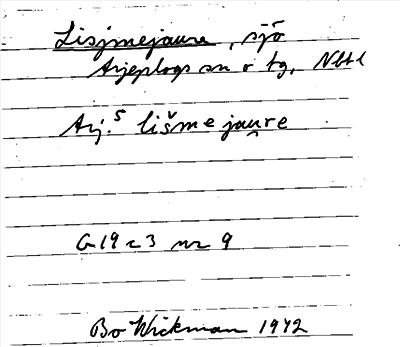 Lisjmejaure, sjö
Arjeplogs sn o tg, Nbtl
Arj.S lišmejau̯re
G 19 c 3 nr 9
Bo Wickman 1942